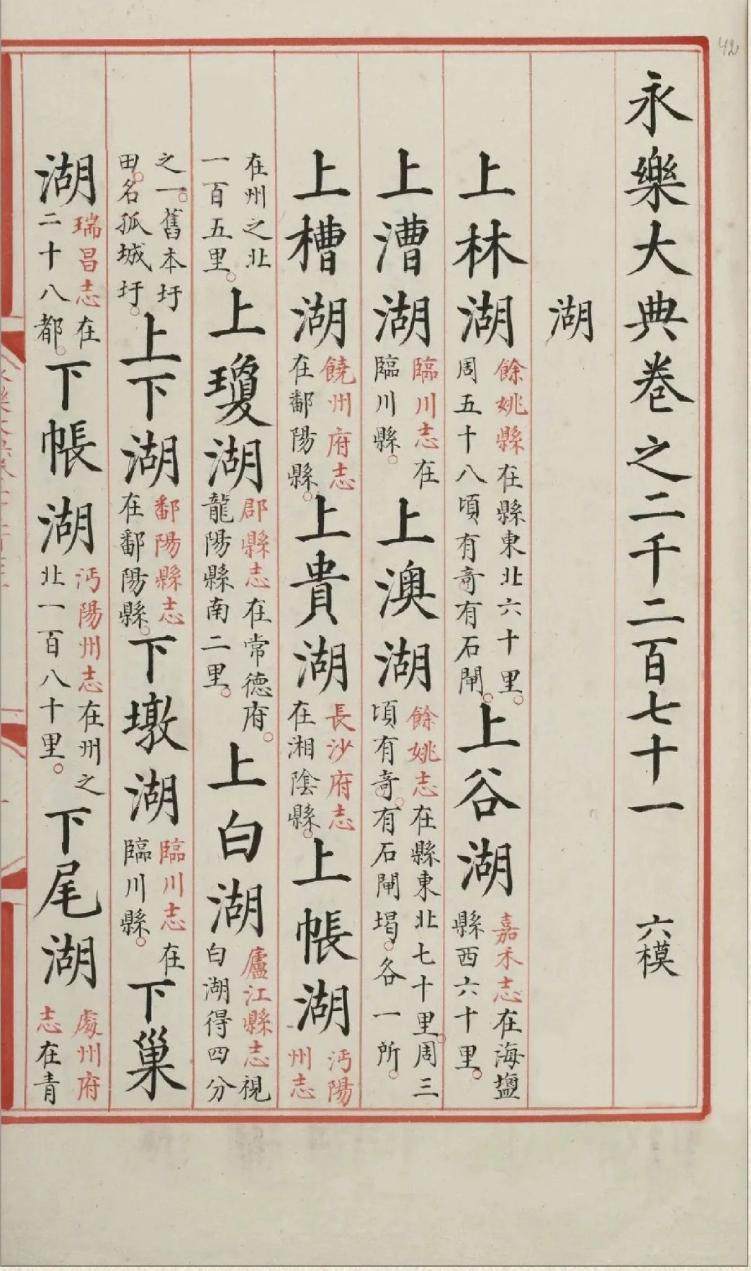 42
永樂大典卷之二千二百七十一 六模
湖
上林湖餘姚縣在縣東北六十里。周五十八頃有奇有石閘。上谷湖嘉禾志在海鹽縣西六十里。
上漕湖臨川志在臨川縣。上澳湖餘姚志在縣東北七十里。周三頃有奇。有石閘堨。各一所。
上槽湖饒州府志在鄱陽縣。上貴湖長沙府志在湘陰縣。上帳湖沔陽州志
在州之北一百五里。上瓊湖郡縣志在常德府。龍陽縣南二里。上白湖廬江縣志視白湖得四分
之一。舊本圩田。名孤城圩。上下湖鄱陽縣志在鄱陽縣。下墩湖臨川志在臨川縣。下巢
湖瑞昌志在二十八都。下帳湖沔陽州志在州之北一百八十里。下尾湖處州府志在青